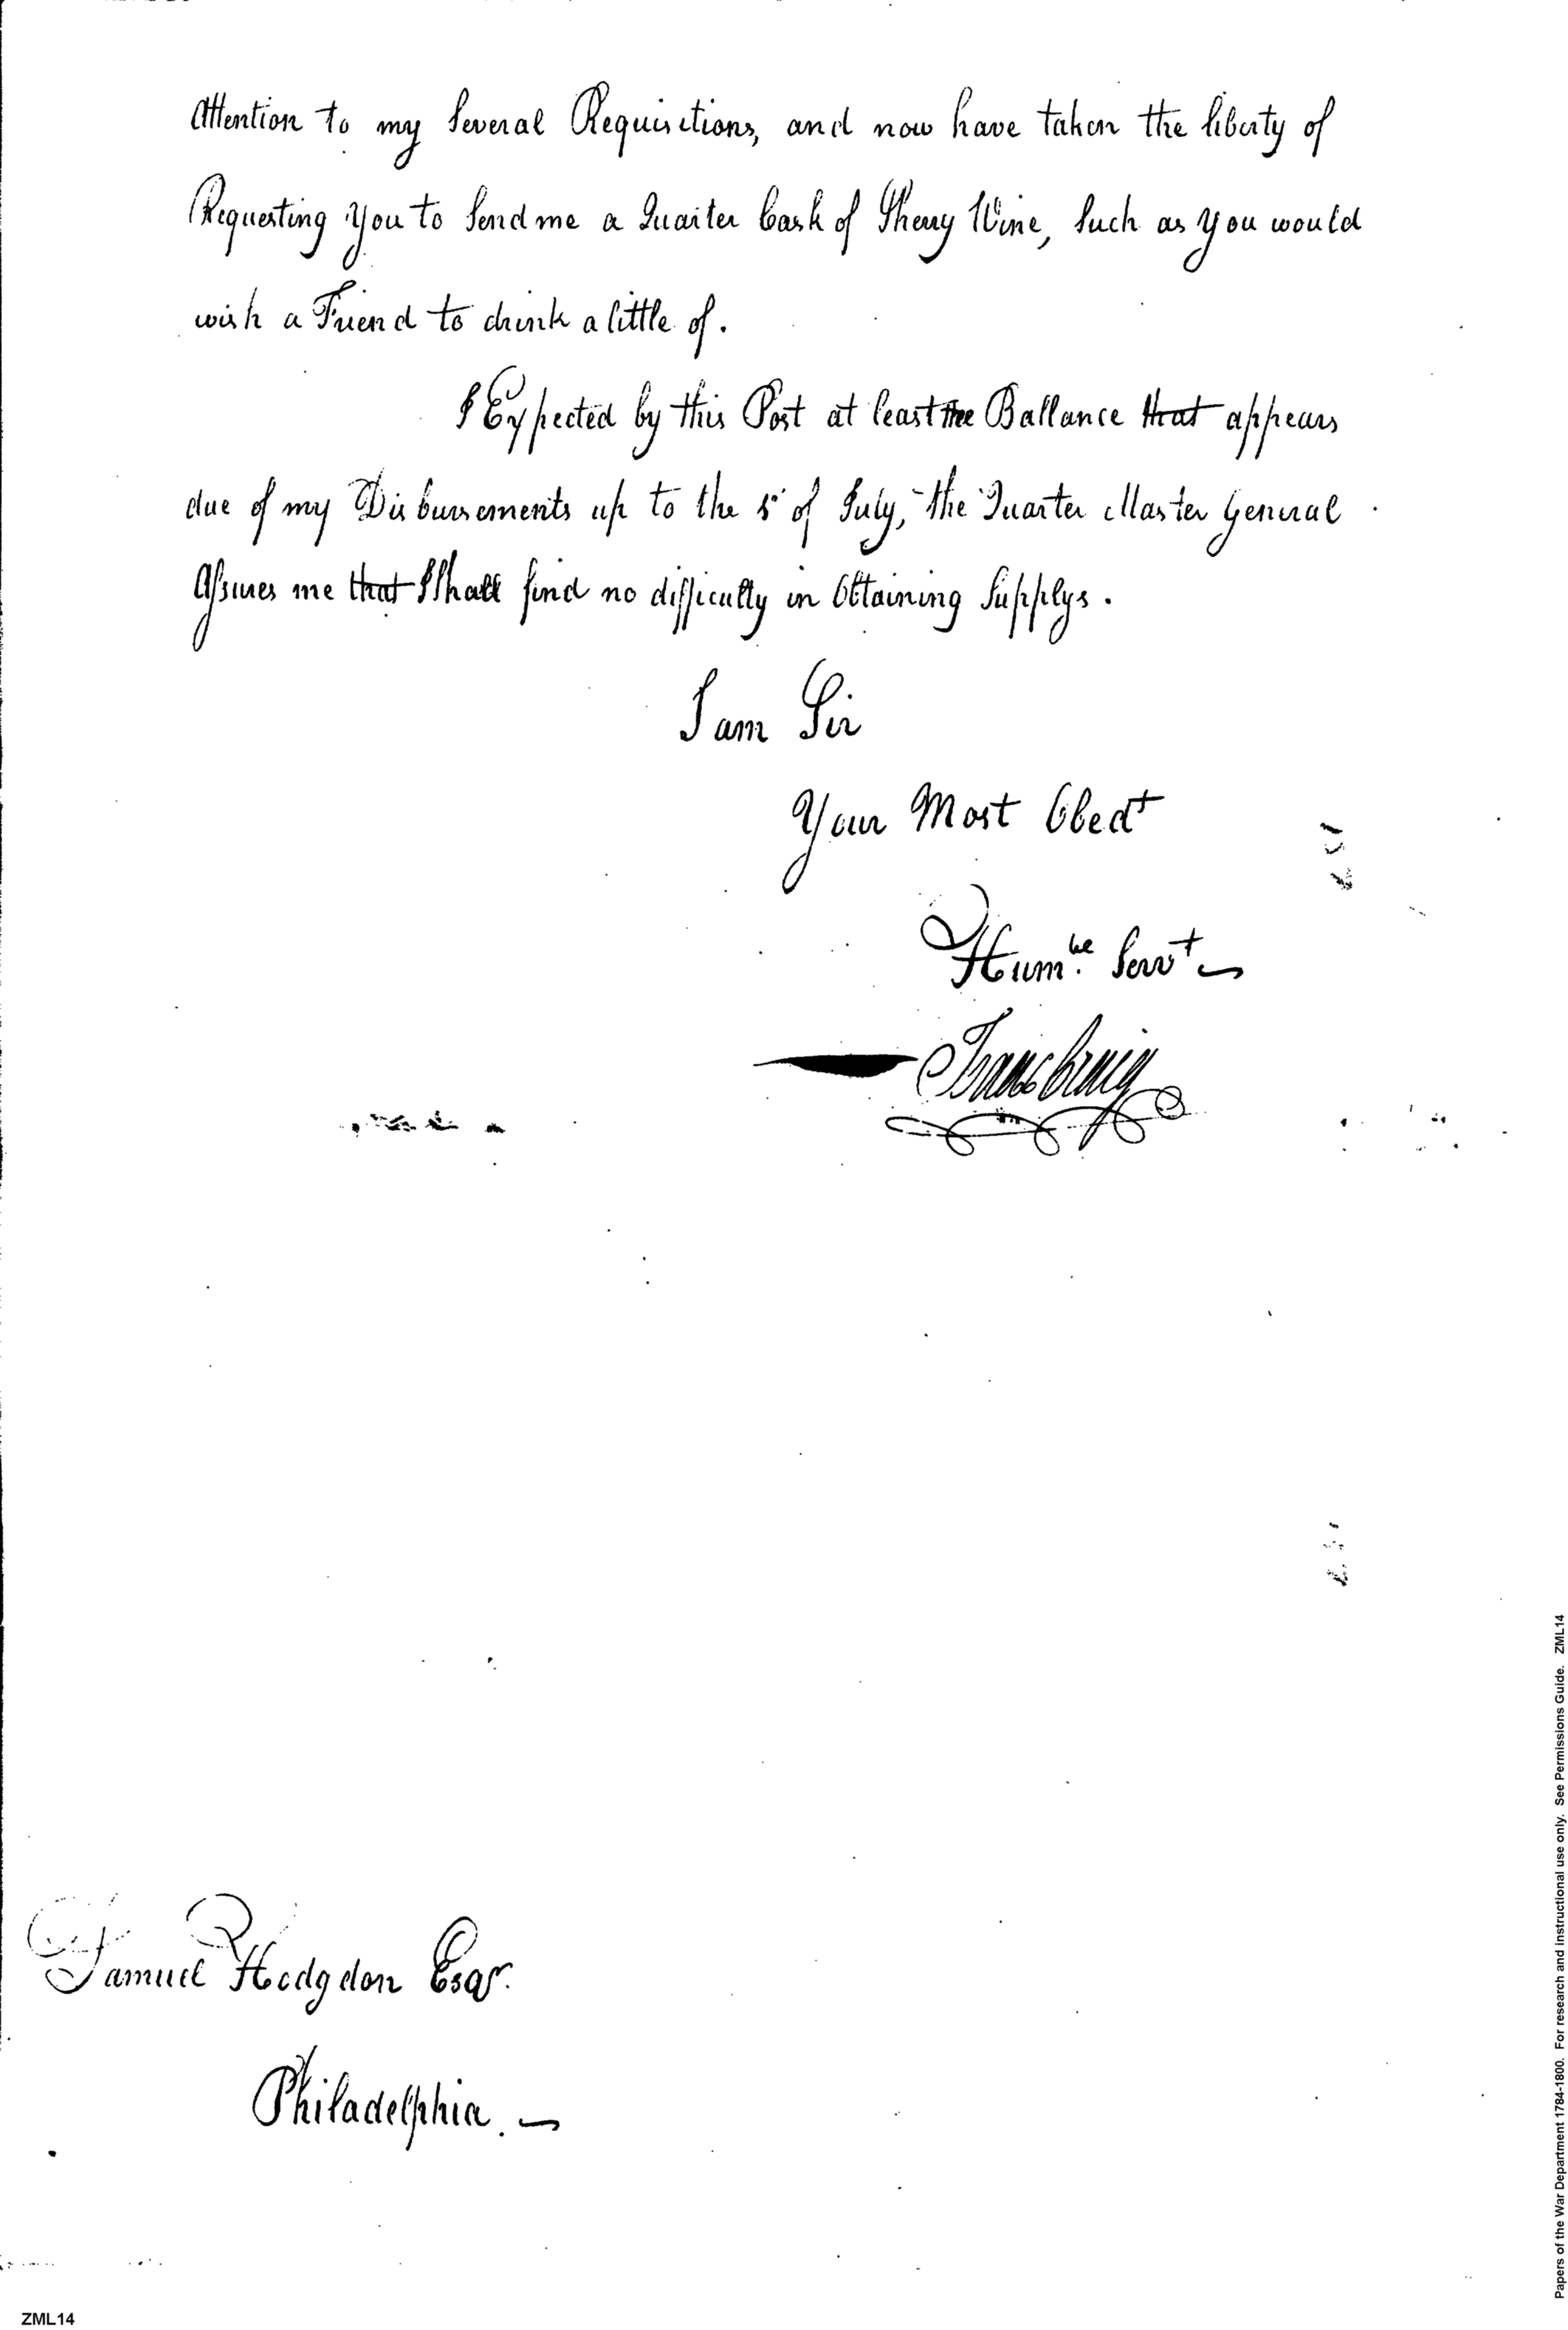 Attention to my Several Requisitions, and now have taken the liberty of
Requesting You to Send me a Quarter Cask of Sherry Wine, Such as you would
wish a Friend to drink a little of.
I Expected by this Post at least the Ballance that appears
due of my Disbursements up to the 1st of July, the Quarter Master General
Assures me that I Shall find no difficulty in Obtaining Supplys.
I am Sir
Your Most Obedt
Humbe Servt
Isaac Craig
Samuel Hodgdon Esqr.
Philadelphia.
Papers of the War Department 1784-1800. For research and instructional use only. See Permissions Guide. ZML14
ZML14